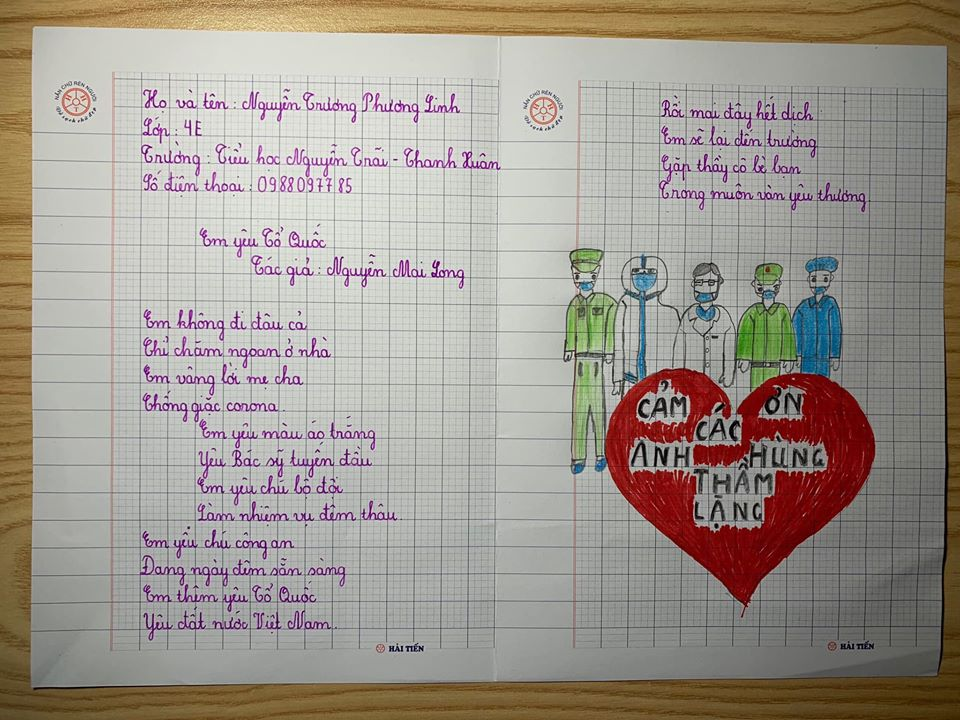 NẮN CHỮ RÈN NGƯỜI
Giữ sạch chữ đẹp
Họ và tên : Nguyễn Trương Phương Linh
Lớp : 4E
Trường : Tiểu học Nguyễn Trãi - Thanh Xuân
Số điện thoại : 0988097785
Em yêu Tổ Quốc
Tác giả : Nguyễn Mai Long
Em không đi đâu cả
Chỉ chăm ngoan ở nhà
Em vâng lời mẹ cha
Chống giặc corona.
Em yêu màu áo trắng
Yêu Bác sỹ tuyến đầu
Em yêu chú bộ đội
Làm nhiệm vụ đêm thâu.
Em yêu chú công an
Đang ngày đêm sẵn sàng
Em thêm yêu Tổ Quốc
Yêu đất nước Việt Nam.
HẢI TIẾN
NẮN CHỮ RÈN NGƯỜI
Giữ sạch chữ đẹp
Rồi mai đây hết dịch
Em sẽ lại đến trường
Gặp thầy cô bè bạn
Trong muôn vàn yêu thương.
CẢM ƠN
CÁC
ANH HÙNG
THẦM
LẶNG
HẢI TIẾN